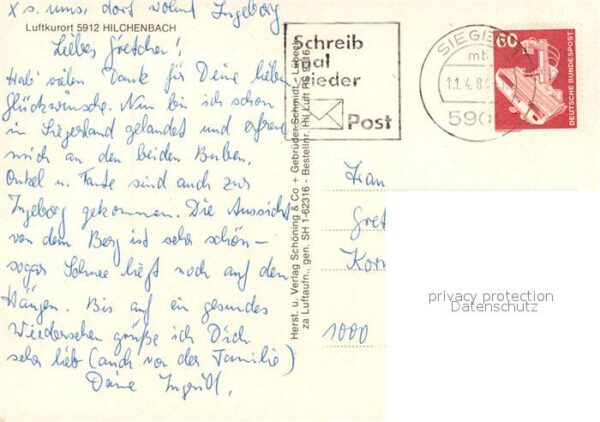 X s. uns, dort wohnt Ingeborg
Luftkurort 5912 HILCHENBACH
Liebes Gretchen!
Hab' vielen Dank für Deine lieben
Glückwünsche. Nun bin ich schon
in Siegerland gelandet und erfreue
mich an den beiden Buben.
Onkel u. Tante sind auch zur
Ingeborg gekommen. Die Aussicht
von dem Berg ist sehr schön –
sogar Schnee liegt noch auf den
Hängen. Bis auf ein gesundes
Wiedersehen grüße ich Dich
sehr lieb (auch von der Familie)
Deine
Herst. u. Verlag Schöning & Co + Gebrüder Schmidt - Lübeck
za Luftaufn., gen. SH 1-62316 - Bestellnr. Hil Luft RS
Schreib
mal
wieder
Post
SIEGEN
mb
11.4.8
590
60
DEUTSCHE BUNDESPOST
Frau
Gret
Korn
1000
privacy protection
Datenschutz